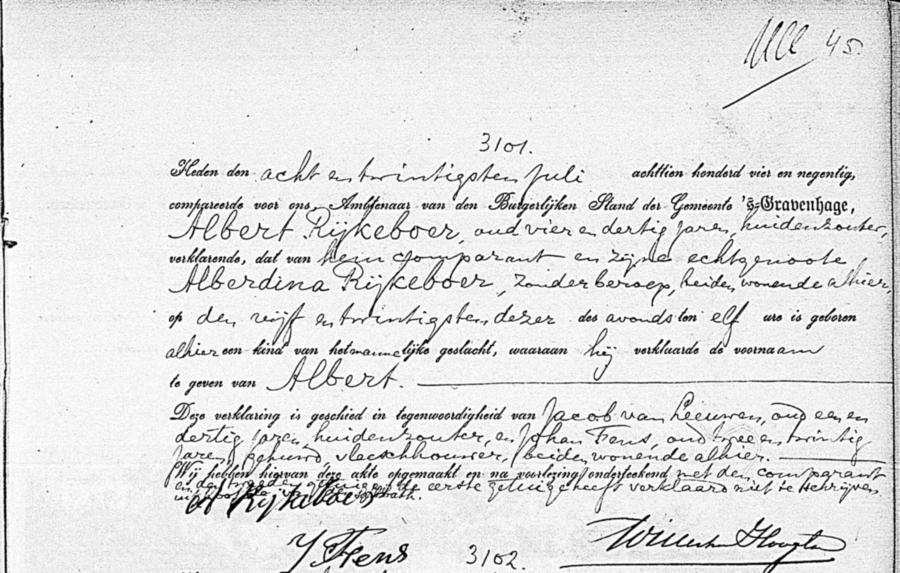 45.
3101.
Heden den acht en twintigsten Juli achttien honderd vier en negentig,
compareerde voor ons, Ambtenaar van den Burgerlijken Stand der Gemeente 's-Gravenhage,
Albert Rijkeboer, oud vier en dertig jaren, huidenzouter,
verklarende, dat van hem comparant en zijne echtgenoote
Alberdina Rijkeboer, zonder beroep, beiden wonende alhier,
op den vijf en twintigsten dezer des avonds ten elf ure is geboren
alhier een kind van het mannelijke geslacht, waaraan hij verklaarde de voornaam
te geven van Albert.
Deze verklaring is geschied in tegenwoordigheid van Jacob van Leeuwen, oud een en
dertig jaren, huidenzouter, en Johan Fens, oud twee en twintig
jaren, vleeschhouwer, beiden wonende alhier.
Wij hebben hiervan deze akte opgemaakt en na voorlezing onderteekend met den comparant
en den tweeden getuige de eerste getuige heeft verklaard niet te schrijven
A Rijkeboer
J Fens
3102.